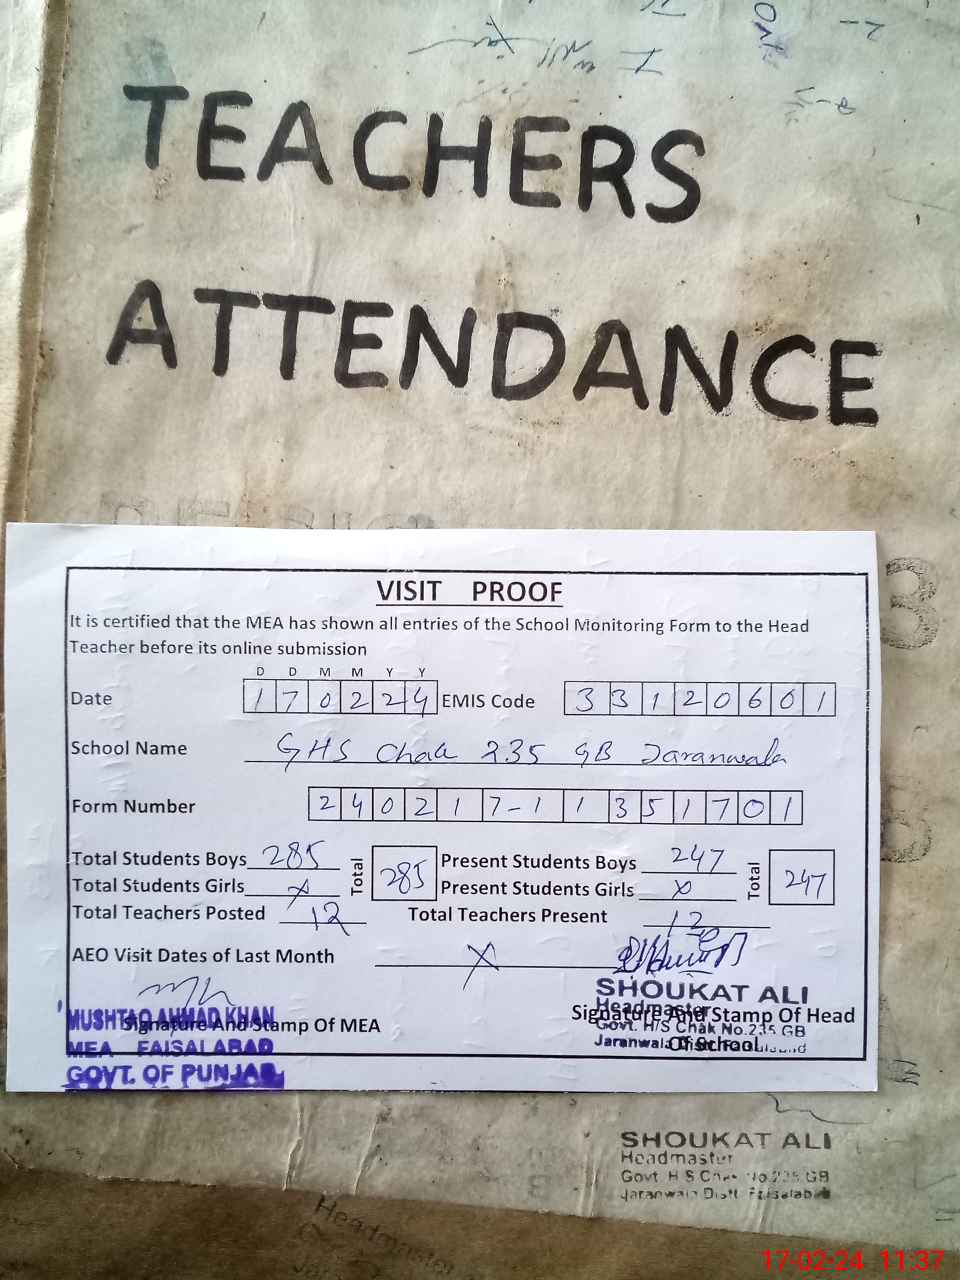 TEACHERS
ATTENDANCE
VISIT PROOF
It is certified that the MEA has shown all entries of the School Monitoring Form to the Head
Teacher before its online submission
D D M M Y Y
Date 1 7 0 2 2 4 EMIS Code 3 3 1 2 0 6 0 1
School Name GHS Chak 235 GB Jaranwala
Form Number 2 4 0 2 1 7 - 1 1 3 5 1 7 0 1
Total Students Boys 285 Total 285 Present Students Boys 247 Total 247
Total Students Girls x Present Students Girls x
Total Teachers Posted 12 Total Teachers Present 12
AEO Visit Dates of Last Month X
SHOUKAT ALI
Headmaster
Govt. H/S Chak No.235 GB
Jaranwala Distt. Faisalabad
Signature And Stamp Of Head
Of School
MUSHTAQ AHMAD KHAN
Signature And Stamp Of MEA
MEA FAISALABAD
GOVT. OF PUNJAB
SHOUKAT ALI
Headmaster
Govt H S Chak No.235 GB
Jaranwala Distt. Faisalabad
Headmaster
17-02-24 11:37